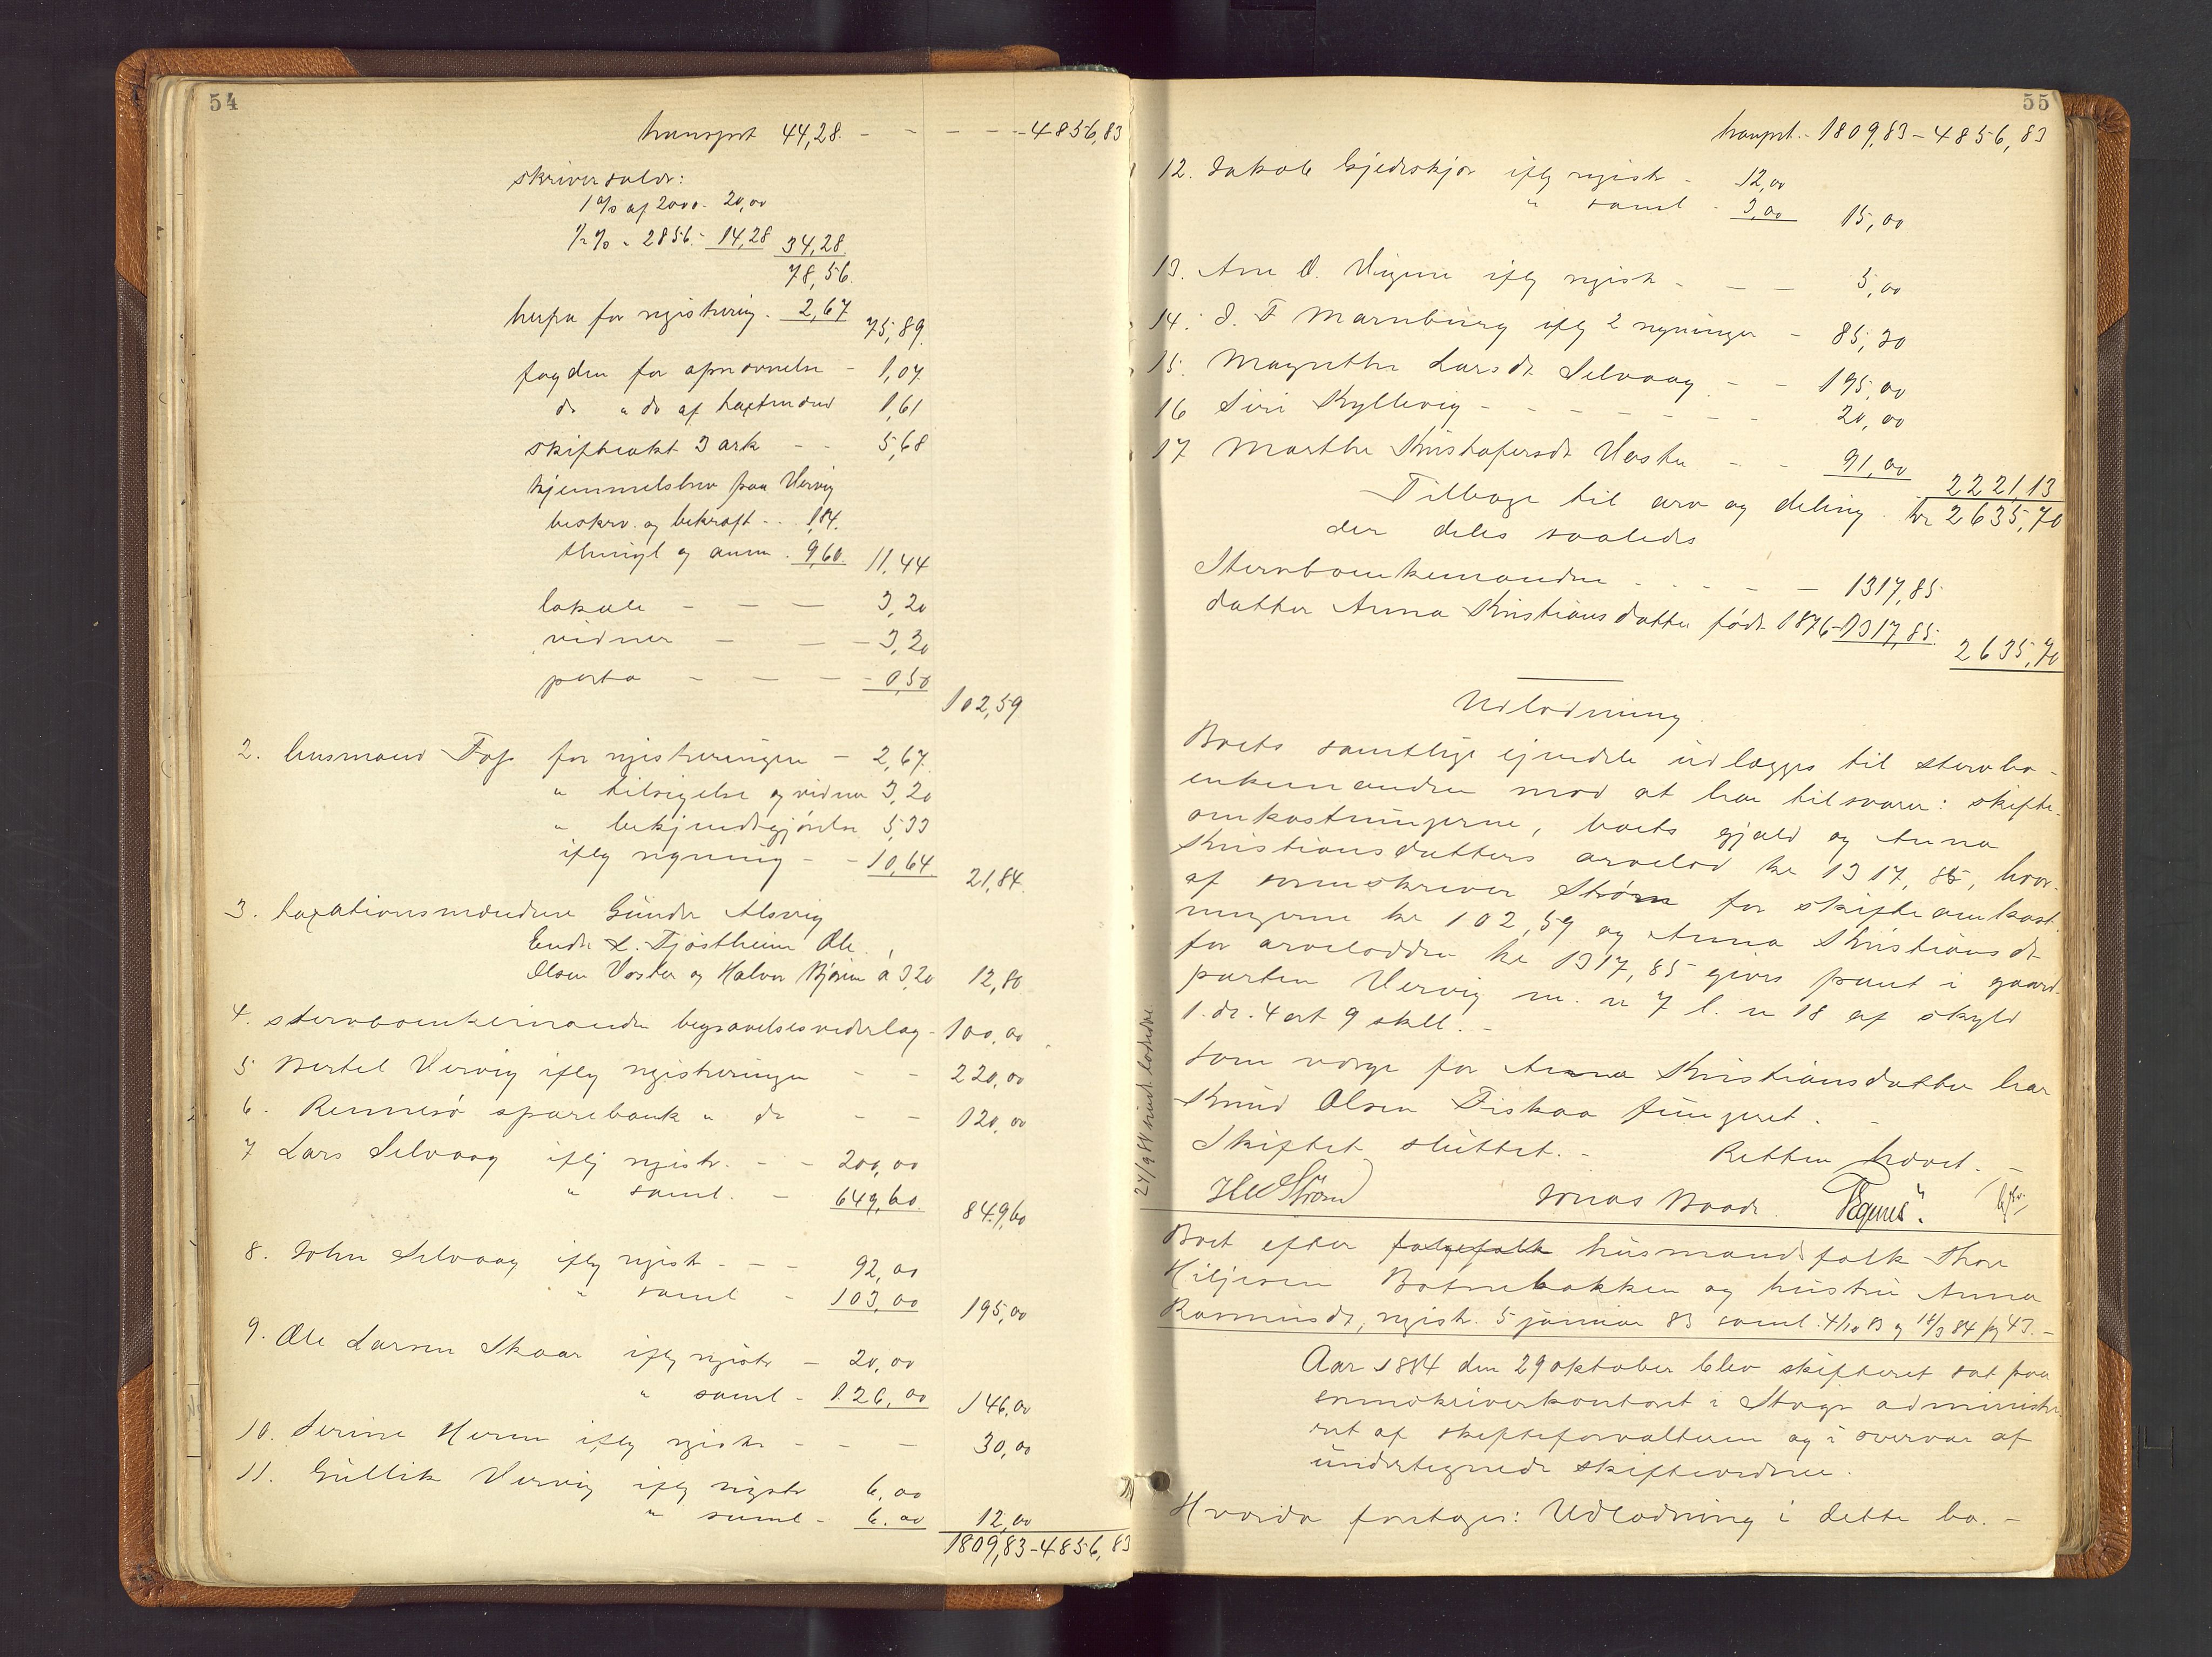 54
transport 44,28. - - - - - 4856,83
skriversalær:
1 % af 2000 - 20,00
½ % " 2856 - 14,28 34,28
78,56
herfra for registrering. 2,67 75,89
fogden for opnævnelse - 1,07
do " do af taxtmænd 1,61
skifteakt 3 ark - - 5,68
hjemmelsbrev paa Vervig
beskrev. og bekræft - - 1,84.
thingl og anm . 9,60 11,44
lokale - - - 3,20
vidner - - - 3,20
porto - - - - 0,50
102,59
2. lensmand for registreringen - 2,67.
" tilsigelse og vidner 3,20
" bekjendtgjørelse 5,33
ifølg regning - - 10,64 21,84
3. taxationsmændene Gunder Alsvig
Endre L. Tjøstheim Ole
Olsen Vaster og Halvor à 3,20 12,80
4. stervboenkemanden begravelsesvederlag - 100,00
5 Bertel Vervig ifølg registreringen - - 220,00
6. Rennesø sparebank " do - - 120,00
7 Lars Selvaag iflg registr. - - 200,00
" saml. - 649,60. 849,60
8. John Selvaag iflg regist - - - 92,00
" saml - 103,00 195,00
9. Ole Larsen Skaar iflg registr - 20,00
" saml - 126,00 146,00
10. Serine iflg registr - - - 30,00
11. Gullik Vervig iflg registr 6,00
" saml - 6,00 12,00
1809,83 - 4856,83
55
transpt. - 1809,83 - 4856,83
12. Jakob Gjedrskjær iflg registr - 12,00
" saml - 3,00 15,00
13. Ane O. iflg regist - - - 5,00
14. J. F Marnburg iflg 2 regninger - 85,30
15. Magrethe Larsdr Selvaag - - 195,00
16 Siri Kyllevig - - - - - - - 20,00
17 Marthe Kristofersdr Vaster - - 91,00 2221,13
Tilbage til arv og deling . kr 2635,70
der deles saaledes
Stervboenkemanden - - - - - 1317,85
datter Anna Kristiansdatter født 1876 - 1317,85.
2635,70
Udlodning.
Boets samtlige ejendele udlægges til stervbo-
enkemanden mod at han tilsvarer: skifte-
omkostningerne, boets gjæld og Anna
Kristiansdatters arvelod kr 1317,85, hvor-
af sorenskriver Strøm for skifteomkost-
ningerne kr 102,59 og Anna Kristiansdr
for arvelodden kr 1317,85 gives pant i gaard-
parten Vervig m. n 7 l. n 18 af skyld
1. dr. 4 ort 9 skill. -
Som værge for Anna Kristiansdatter har
Knud Olsen Fiskaa fungeret. -
Skiftet sluttet. - Retten hævet. -
Strøm Jonas Baade
Boet efter husmandsfolk Thore
Botnebakken og hustru Anna
Rasmusdr, regist. 5 januar 83 saml. 4/10 83 og 18/3 84 pg 43. -
Aar 1884 den 29 oktober blev skifteret sat paa
sorenskriverkontoret i Hauge administre-
ret af skifteforvalteren og i overvær af
undertegnede skiftevidner.
Hvorda foretoges: Udlodning i dette bo. -